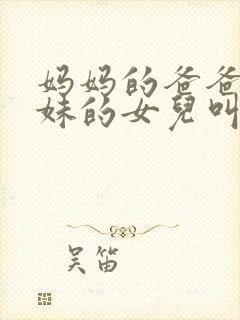 妈妈的爸爸
妹的女兒叫
吴笛